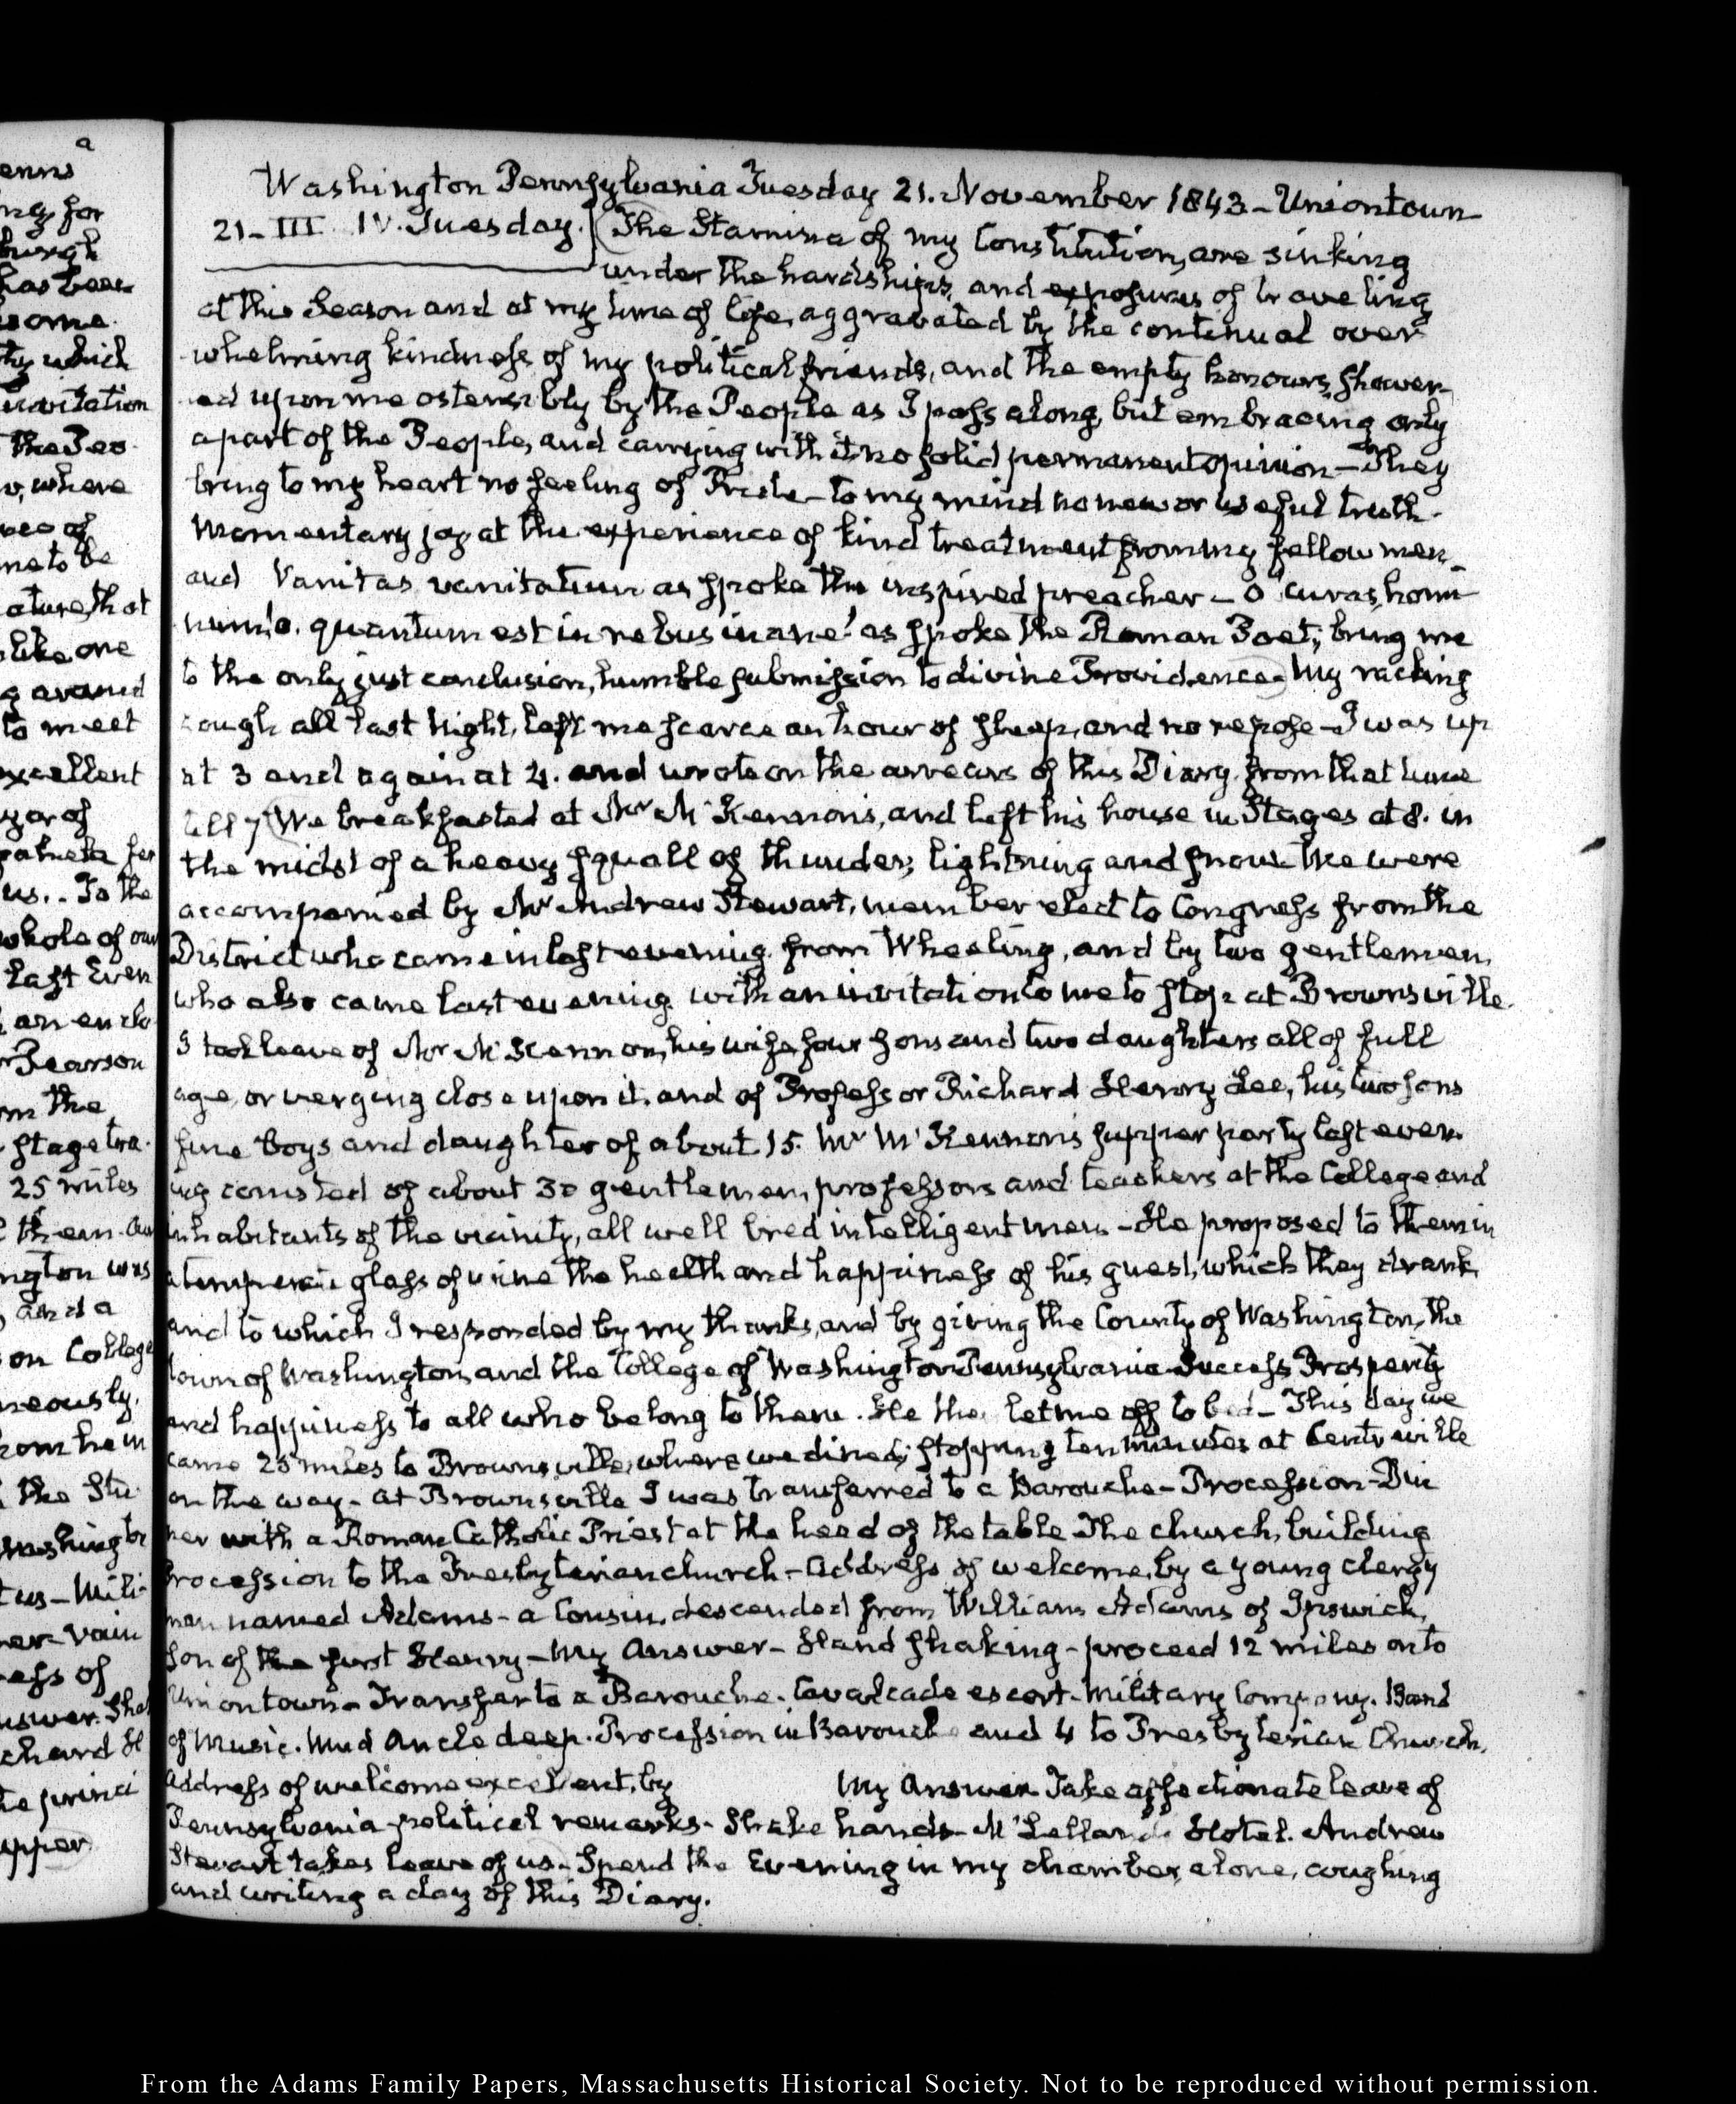 Washington Pennsylvania Tuesday 21. November 1843 – Uniontown
21 – III. IV. Tuesday. The Stamina of my Constitution, are sinking
under the hardships, and exposures of traveling
at this Season and at my time of life, aggravated by the continual over
whelming kindness of my political friends, and the empty honours, shower
ed upon me ostensibly by the People as I pass along, but embracing only
a part of the People, and carrying with it no solid permanent opinion – They
bring to my heart no feeling of Pride – to my mind no new or useful truth.
Momentary joy at the experience of kind treatment from my fellow men –
and Vanitas vanitatum as spoke the inspired preacher – O curas homi
num! o. quantum est in rebus inane! as spoke the Roman Poet; bring me
to the only just conclusion, humble submission to divine Providence – My racking
cough all last Night, left me scarce an hour of sleep, and no repose – I was up
at 3 and again at 4. and wrote on the arrears of this Diary from that time
till 7 We breakfasted at Mr. McKennon's, and left his house in Stages at 8. in
the midst of a heavy squall of thunder, lightning and snow. We were
accompanied by Mr. Andrew Stewart, member elect to Congress from the
District who came in last evening from Wheeling, and by two gentlemen,
who also came last evening with an invitation to me to stop at Brownsville.
I took leave of Mr. McKennon, his wife, four sons and two daughters all of full
age, or verging close upon it, and of Professor Richard Henry Lee, his two sons
fine boys and daughter of about 15. Mr. McKennon's supper party last even
ing consisted of about 30 gentlemen, professors and teachers at the College and
inhabitants of the vicinity, all well bred intelligent men – He proposed to them in
a temperate glass of wine the health and happiness of his guest, which they drank
and to which I responded by my thanks, and by giving the County of Washington, the
town of Washington, and the College of Washington Pennsylvania Success Prosperity
and happiness to all who belong to them. He then let me off to bed – This day we
came 23 miles to Brownsville, where we dined; stopping ten minutes at Centreville
on the way – at Brownsville I was transferred to a Barouche – Procession – Din
ner with a Roman Catholic Priest at the head of the table The church, building
Procession to the Presbyterian church – Address of welcome, by a young clergy
man named Adams – a Cousin, descended from William Adams of Ipswich,
son of the first Henry – My Answer – Hand shaking – proceed 12 miles on to
Uniontown – Transfer to a Barouche. Cavalcade escort. Military Company. Band
of Music. Mud Ancle deep. Procession in Barouche and 4 to Presbyterian Church.
Address of welcome excellent, by My Answer Take affectionate leave of
Pennsylvania – political remarks. Shake hands – McLelland's Hotel. Andrew
Stewart takes leave of us. Spend the Evening in my chamber, alone, coughing
and writing a day of this Diary.
a
enns
ng for
burgh
has been
some
ty which
invitation
the Peo
where
me to be
ature, that
like one
to meet
excellent
us. . To the
whole of our
last Even
Pearson
om the
stage tra
25 miles
them.
ngton was
and a
on College
neously,
from hem
the Stu
Washington
us – Mili
ess of
answer. Sha
chard H
the princi
upper
From the Adams Family Papers, Massachusetts Historical Society. Not to be reproduced without permission.